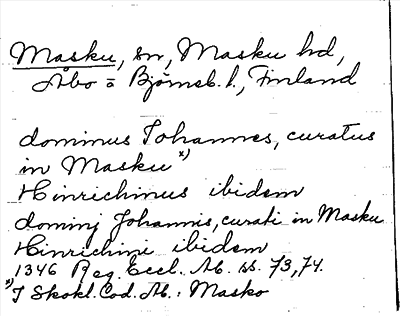 Masku, sn, Masku hd,
Åbo o Björneb. l., Finland
dominus Johannes, curatus
in Masku x)
Hinrichinus ibidem
dominj Johannis, curati in Masku
Hinrichini ibidem
1346 Reg. Eccl. Ab. ss. 73, 74.
x) I Skokl. Cod. Ab.: Masko